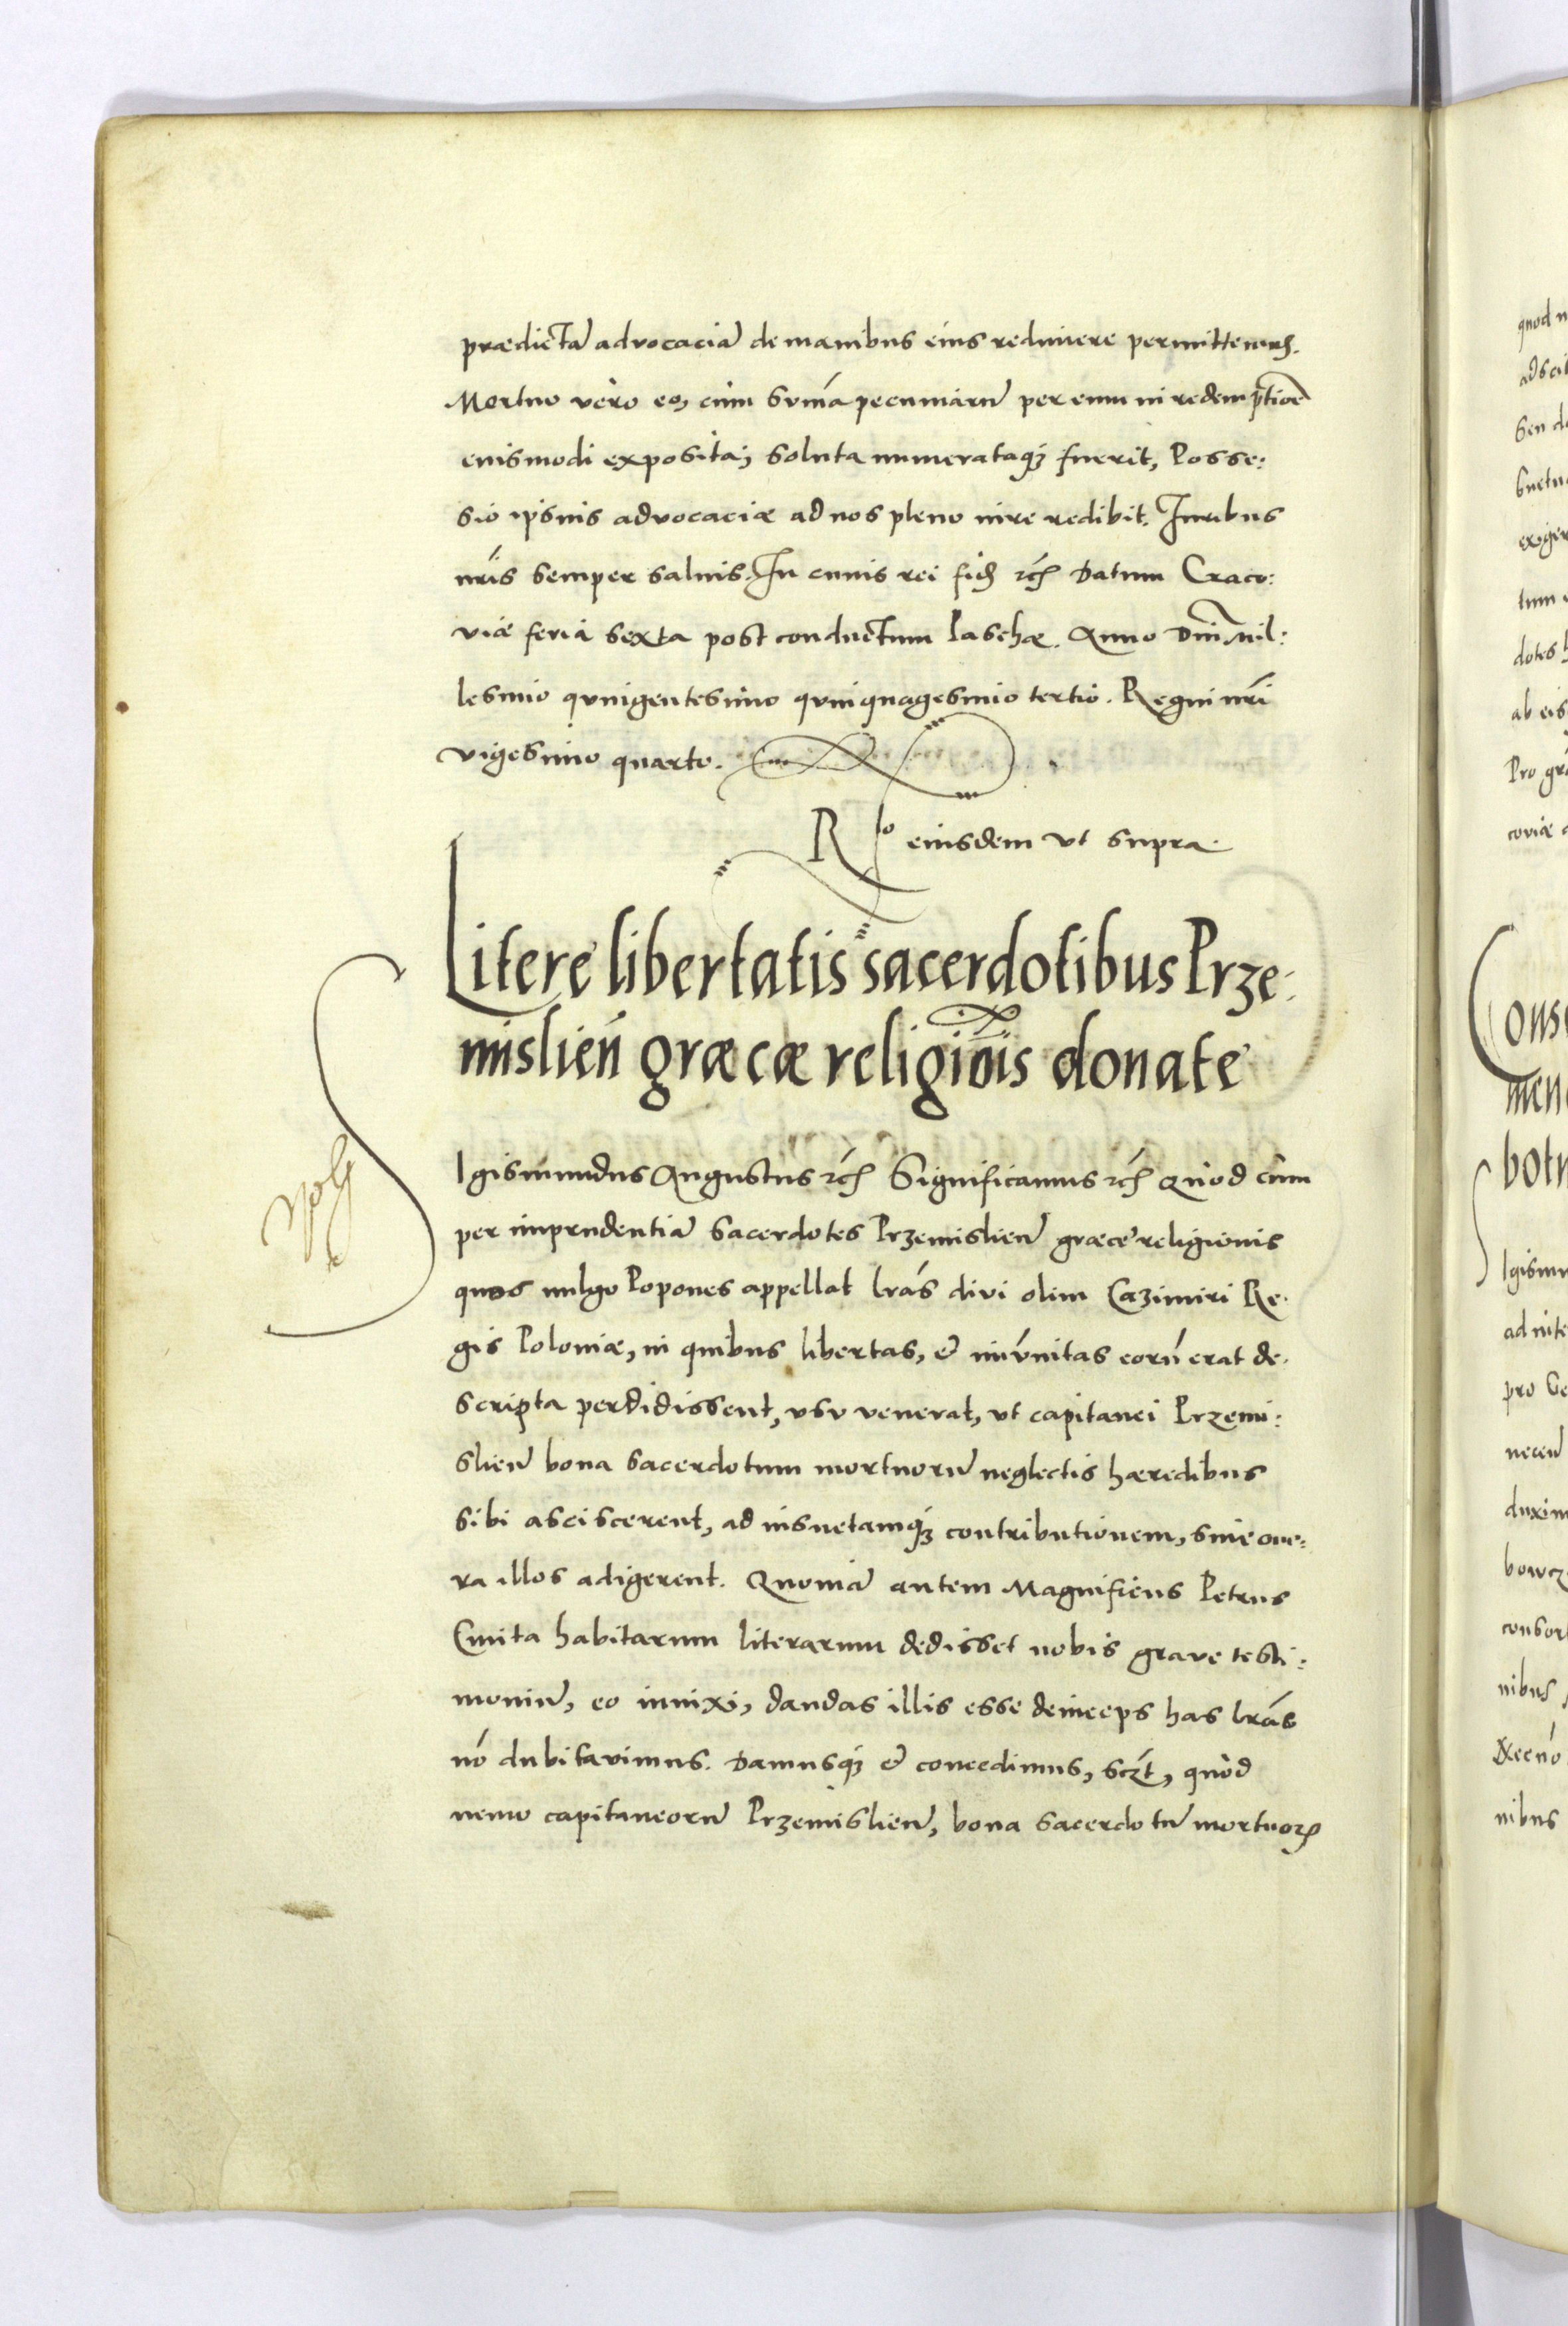 prædictã advocaciã de manibus eius redimere permittemus.
Mortuo vero eo, cùm sum̃a pecuniarũ per eum in redemptioẽ
eiusmodi exposita, soluta numerataqꝫ fuerit, Posse:
sio ipsius advocaciæ ad nos pleno iure redibit. Iuribus
nr̃is semper saluis. In cuius rei fid̃ rc̃ Datum Craco:
viæ feria sexta post conductum Paschæ. Anno Dñi Mil:
lesimo quingentesimo quinquagesimo tertio. Regni nr̃i
vigesimo quarto.
Rlo eiusdem ut supra.
Litere libertatis sacerdotibus Prze:
misliеñ græcæ religiõis donate
Sigismundus Augustus rc̃ Significamus rc̃ Quod cùm
per imprudentiã sacerdotes Przemislieñ græce religionis
quos uulgo Popones appellat lr̃as divi olim Cazimiri Re:
gis Poloniæ, in quibus libertas, et im̃unitas eorũ erat de:
scripta perdidissent, usu venerat, ut capitanei Przemi:
slieñ bona sacerdotum mortuorũ neglectis hæredibus
sibi asciscerent, ad insuetamqꝫ contributionem, sive one:
ra illos adigerent. Quoniã autem Magnificus Petrus
Cmita habitarum literarum dedisset nobis grave testi:
moniũ, eo innixi, dandas illis esse deinceps has lr̃as
nõ dubitavimus. Damusqꝫ et concedimus, sczt, quod
nemo capitaneorũ Przemislieñ, bona sacerdotũ mortuoꝝ
quod n
ex:iger
tum
dotes
ab eis
Pro gr̃a
coviæ
Cons
men
botn
Sigism
ad inte
pro
duxim
bowcz
consor
nibus
nibus